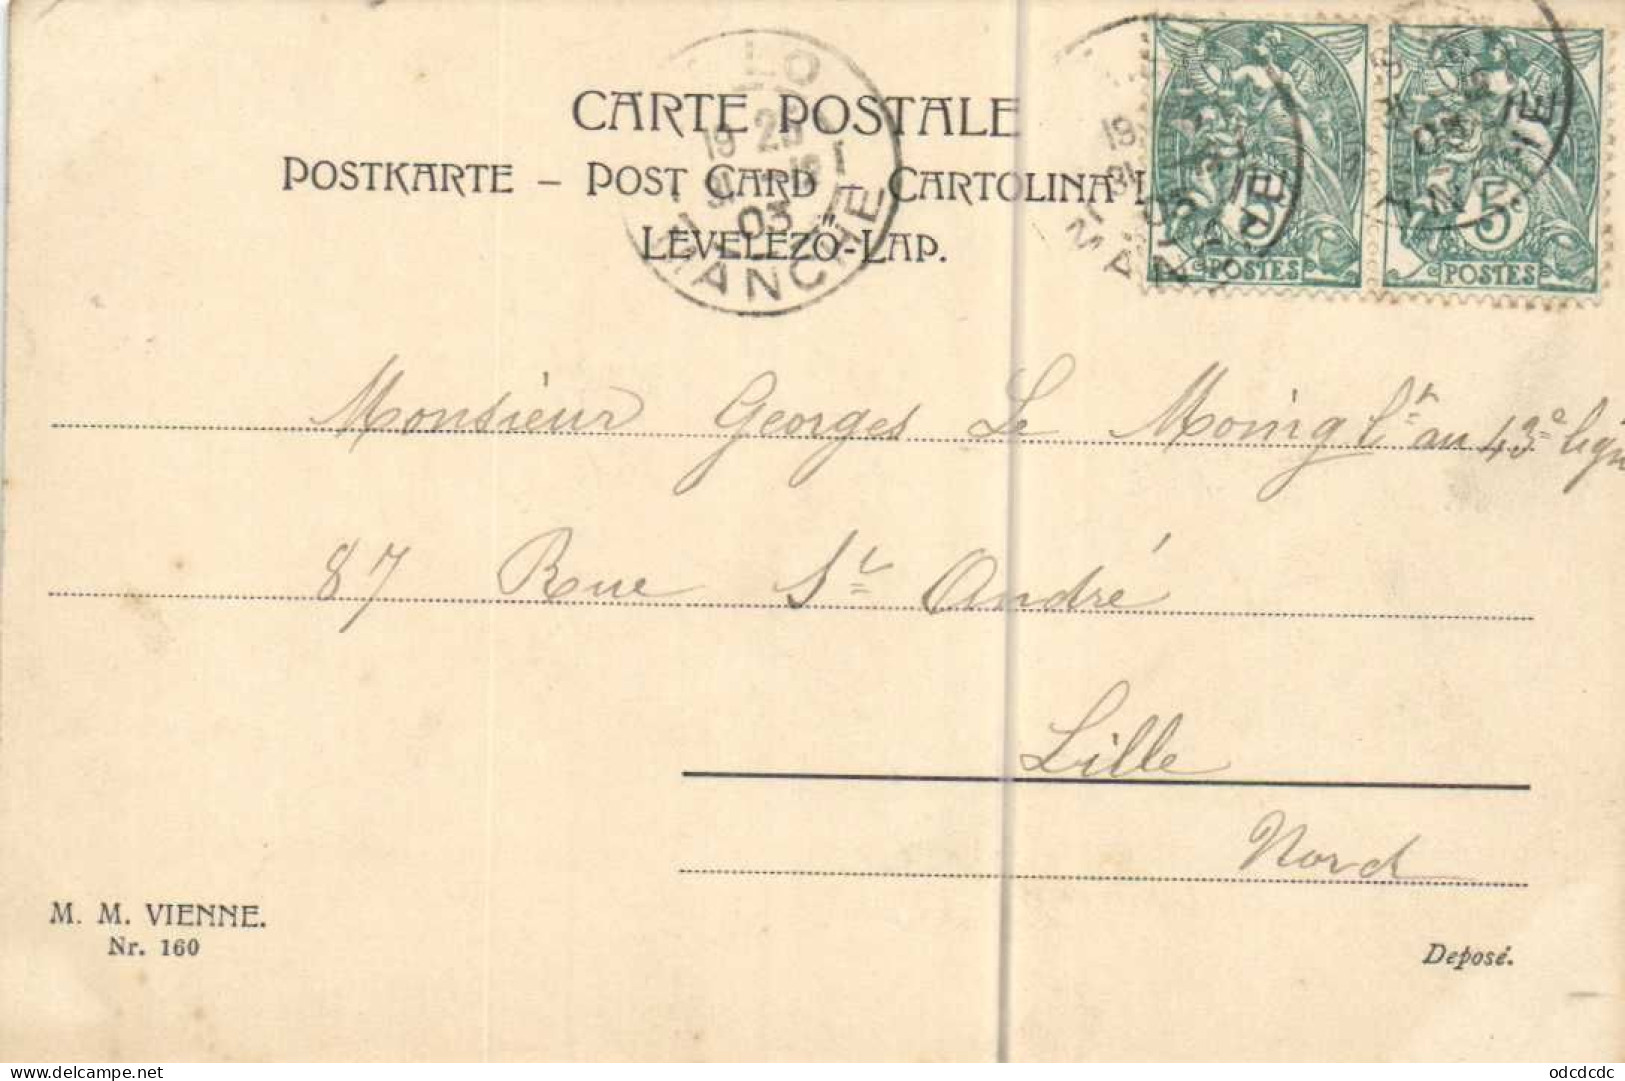 CARTE POSTALE
POSTKARTE – POST CARD – CARTOLINA
LEVELEZŐ-LAP.
LO
19 20
31
03
MANCHE
5
POSTES
5
POSTES
Monsieur Georges Le Moing Lt au 43e ligne
87 Rue St André
Lille
Nord
M. M. VIENNE.
Nr. 160
Deposé.
delcampe.net
odcdcdc